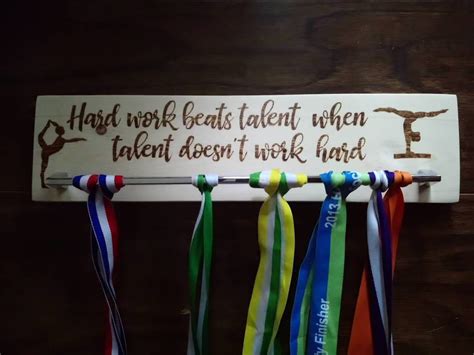 Hard work beats talent when
talent doesn't work hard
2013
Finisher